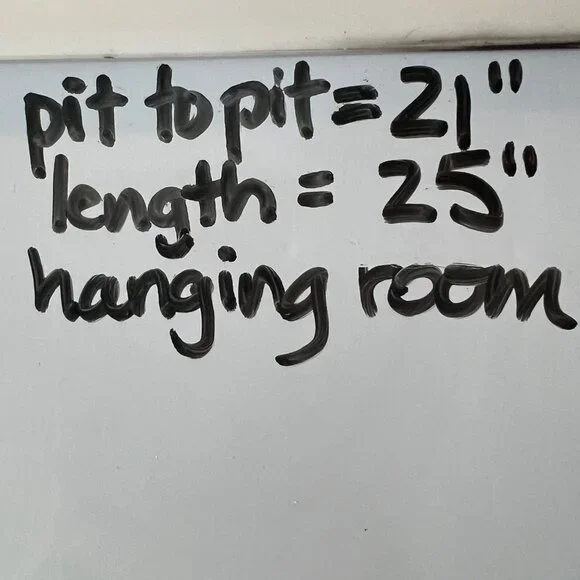 pit to pit = 21"
length = 25"
hanging room